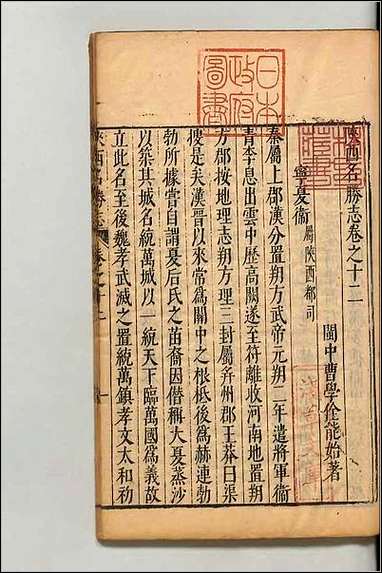 陝西名勝志卷之十二
閩中曹學佺能始著
寧夏衛 屬陝西都司
秦屬上郡漢分置朔方武帝元朔二年遣將軍衞
青李息出雲中歷高闕遂至符離收河南地置朔
方郡按地理志朔方理三封屬幷州郡王莽曰渠
搜是矣漢晉以來常爲關中之根柢後爲赫連勃
勃所據嘗自謂夏后氏之苗裔因僭稱大夏蒸沙
以築其城名統萬城以一統天下臨萬國爲義故
立此名至後魏孝武滅之置統萬鎮孝文太和初
陝西名勝志
卷之十二
一
日本
政府
圖書